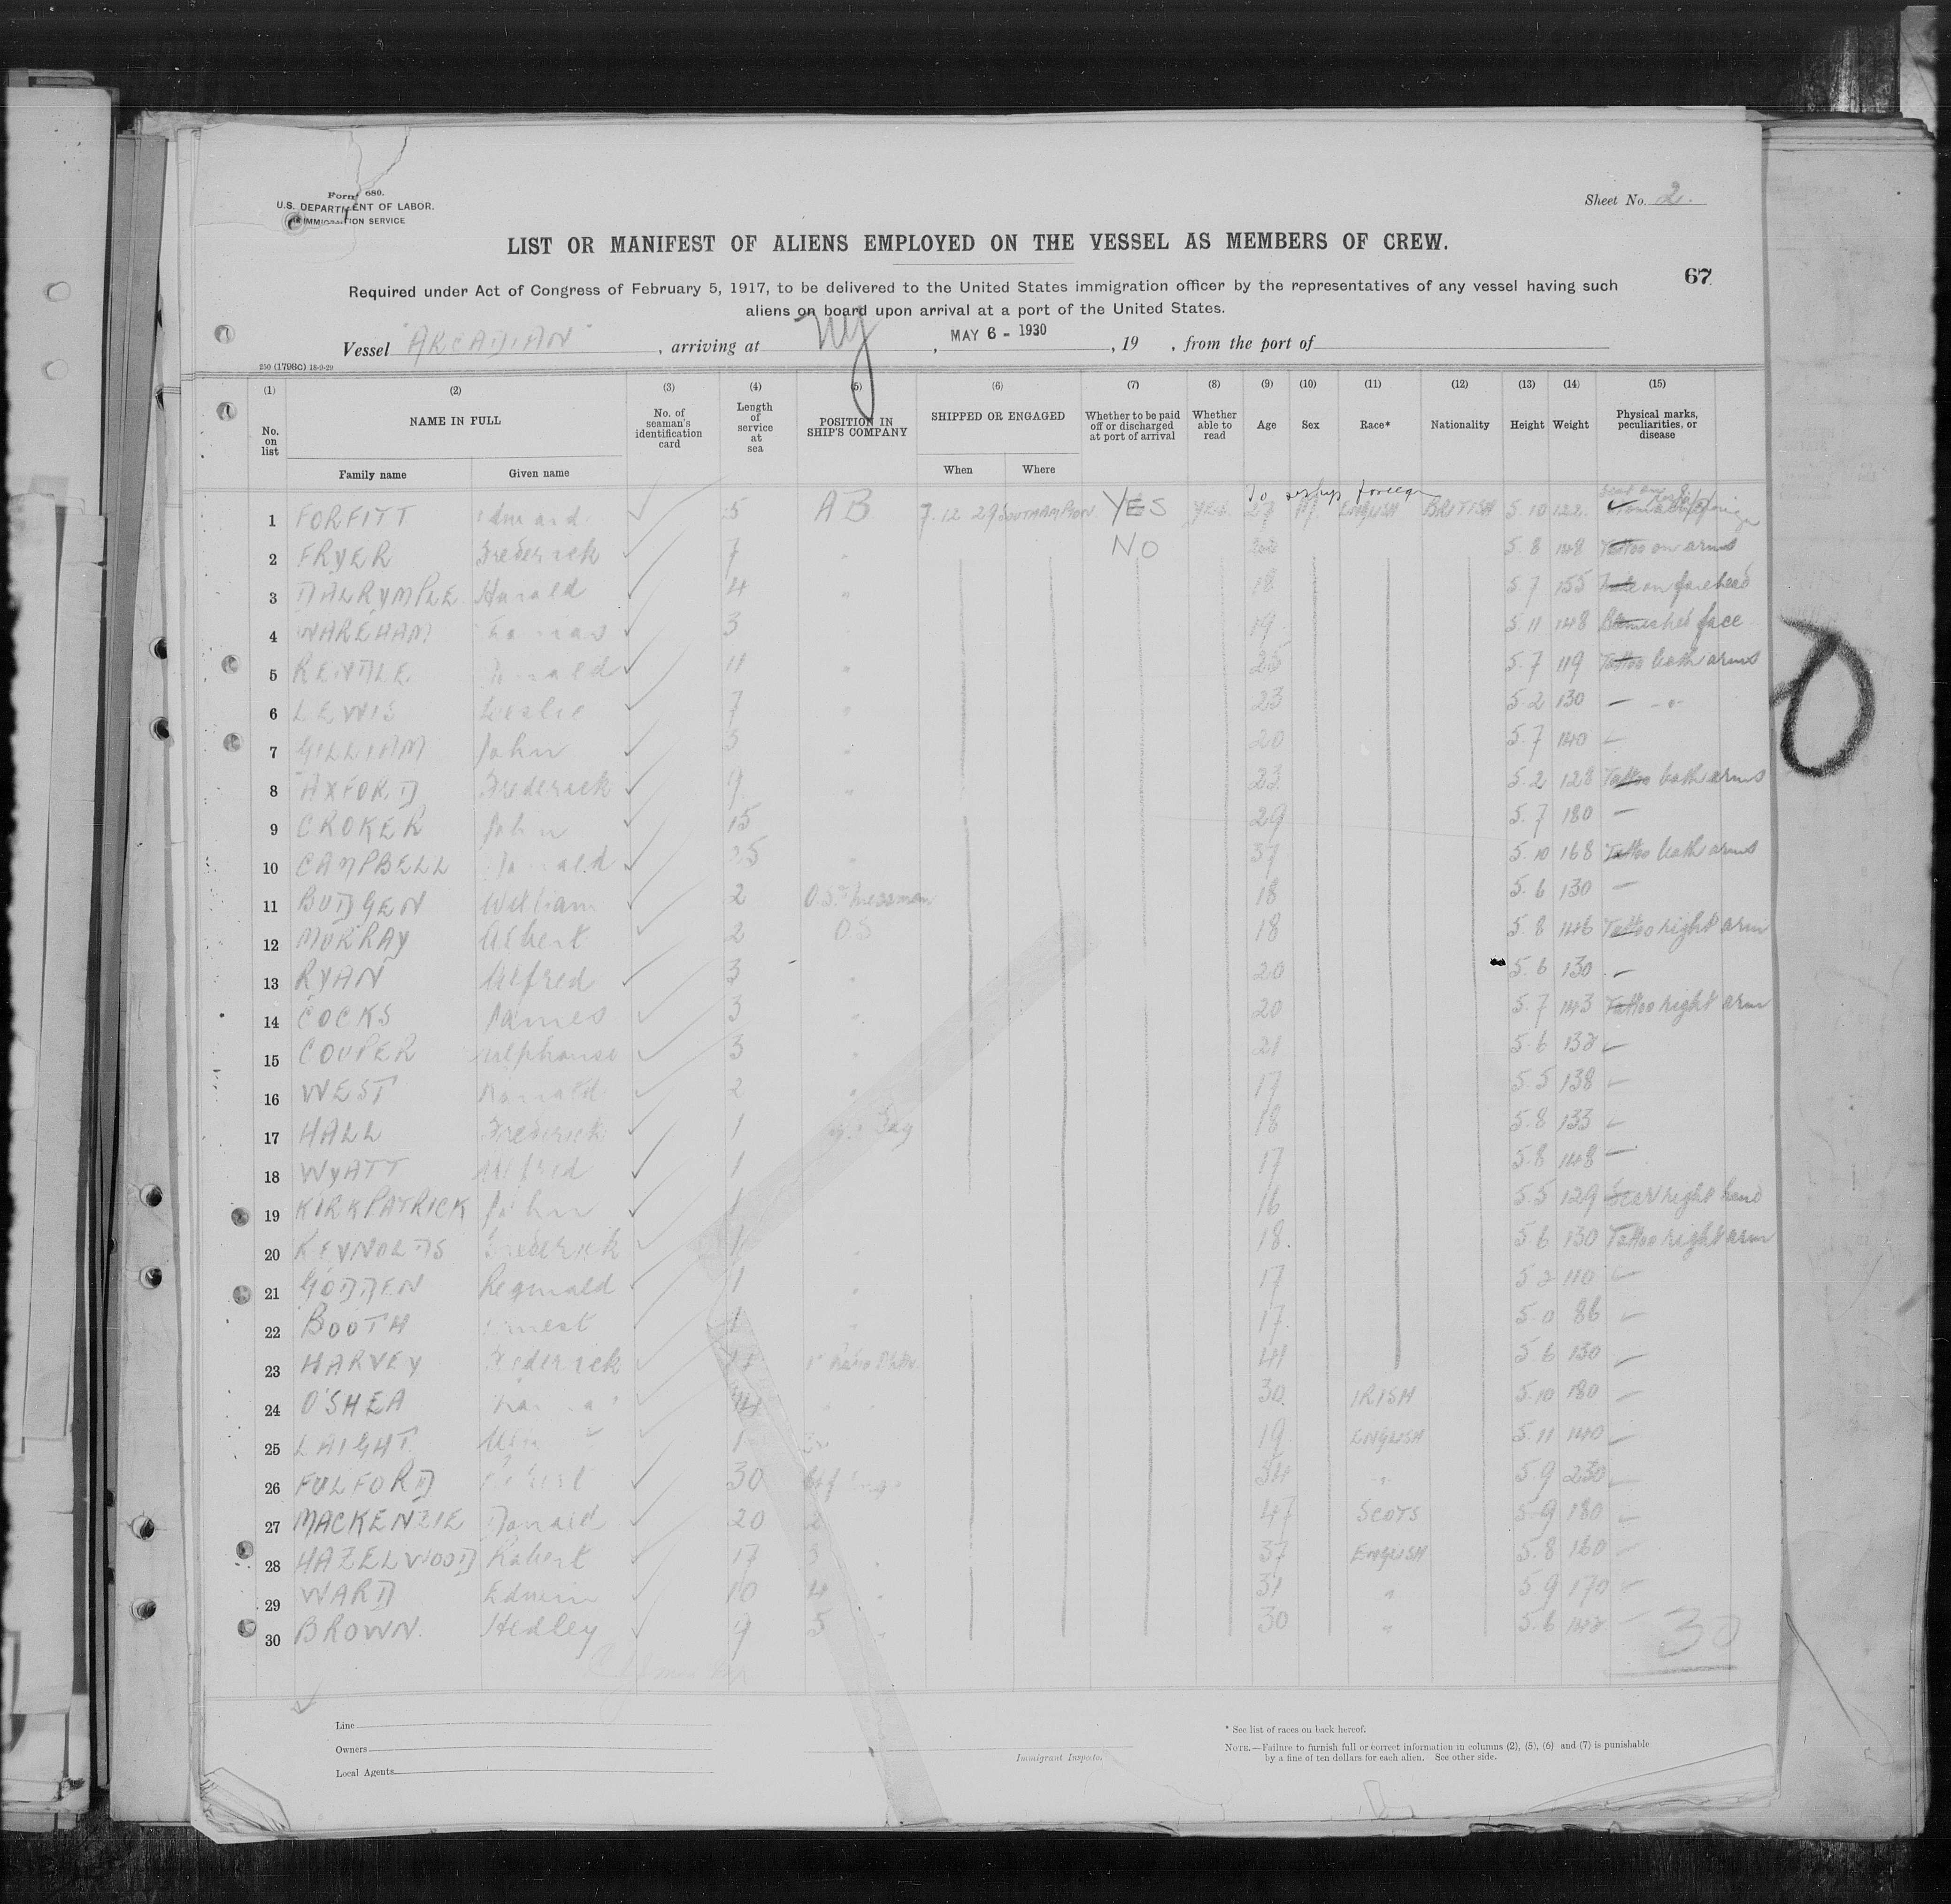 Form 680.
U.S. DEPARTMENT OF LABOR.
IMMIGRATION SERVICE
Sheet No. 2.
LIST OR MANIFEST OF ALIENS EMPLOYED ON THE VESSEL AS MEMBERS OF CREW.
67
Required under Act of Congress of February 5, 1917, to be delivered to the United States immigration officer by the representatives of any vessel having such
aliens on board upon arrival at a port of the United States.
Vessel "ARCADIAN", arriving at NY, MAY 6 - 1930, 19 , from the port of
250 (1798C) 18-9-29
(1) (2) (3) (4) (5) (6) (7) (8) (9) (10) (11) (12) (13) (14) (15)
No. on list NAME IN FULL No. of seaman's identification card Length of service at sea POSITION IN SHIP'S COMPANY SHIPPED OR ENGAGED Whether to be paid off or discharged at port of arrival Whether able to read Age Sex Race* Nationality Height Weight Physical marks, peculiarities, or disease
Family name Given name When Where
To reship foreign
1 FORFITT Edward 5 AB 7.12.29 SOUTHAMPTON YES YES 27 M. ENGLISH BRITISH 5.10 122
2 FRYER Frederick 7 " NO 5.8 148 Tattoo on arms
3 DALRYMPLE Harald 4 " 18 5.7 155 on forehead
4 WAREHAM Thomas 3 19 5.11 148 Blemished face
5 RENDLE 11 " 25 5.7 119 Tattoo both arms
6 LEWIS Leslie 7 " 23 5.2 130 — -"-
7 GILLIAM John 3 " 20 5.7 140 —
8 AXFORD Frederick 9 " 23 5.2 128 Tattoo both arms
9 CROKER John 15 29 5.7 180 —
10 CAMPBELL 25 " 37 5.10 168 Tattoo both arms
11 BUDGEN William 2 O.S. Messman 18 5.6 130 —
12 MURRAY Albert 2 O.S 18 5.8 146 Tattoo right arm
13 RYAN Alfred 3 " 20 5.6 130 —
14 COCKS James 3 " 20 5.7 143 Tattoo right arm
15 COUPER Alphonse 3 " 21 5.6 132 —
16 WEST Ronald 2 " 17 5.5 138 —
17 HALL Frederick 1 18 5.8 133 —
18 WYATT Alfred 1 17 5.8 148 —
19 KIRKPATRICK John 1 16 5.5 129 Scar right hand
20 REYNOLDS Frederick 1 " 18. 5.6 130 Tattoo right arm
21 GODDEN Reginald 1 " 17 5.2 110 —
22 BOOTH Ernest 1 " 17. 5.0 86 —
23 HARVEY Frederick 41 5.6 130 —
24 O'SHEA " " 30 IRISH 5.10 180 —
25 LAIGHT 1 19 ENGLISH 5.11 140 —
26 FULFORD 30 54 -"- 5.9 230 —
27 MACKENZIE Donald 20 2 47 SCOTS 5.9 180 —
28 HAZELWOOD Robert 17 3 " 37 ENGLISH 5.8 160 —
29 WARD Edwin 10 4 " 31 " 5.9 170 —
30 BROWN. Hedley 9 5 " 30 " 5.6 142 —
30
Line
Owners
Local Agents
Immigrant Inspector
* See list of races on back hereof.
NOTE.—Failure to furnish full or correct information in columns (2), (5), (6) and (7) is punishable
by a fine of ten dollars for each alien. See other side.